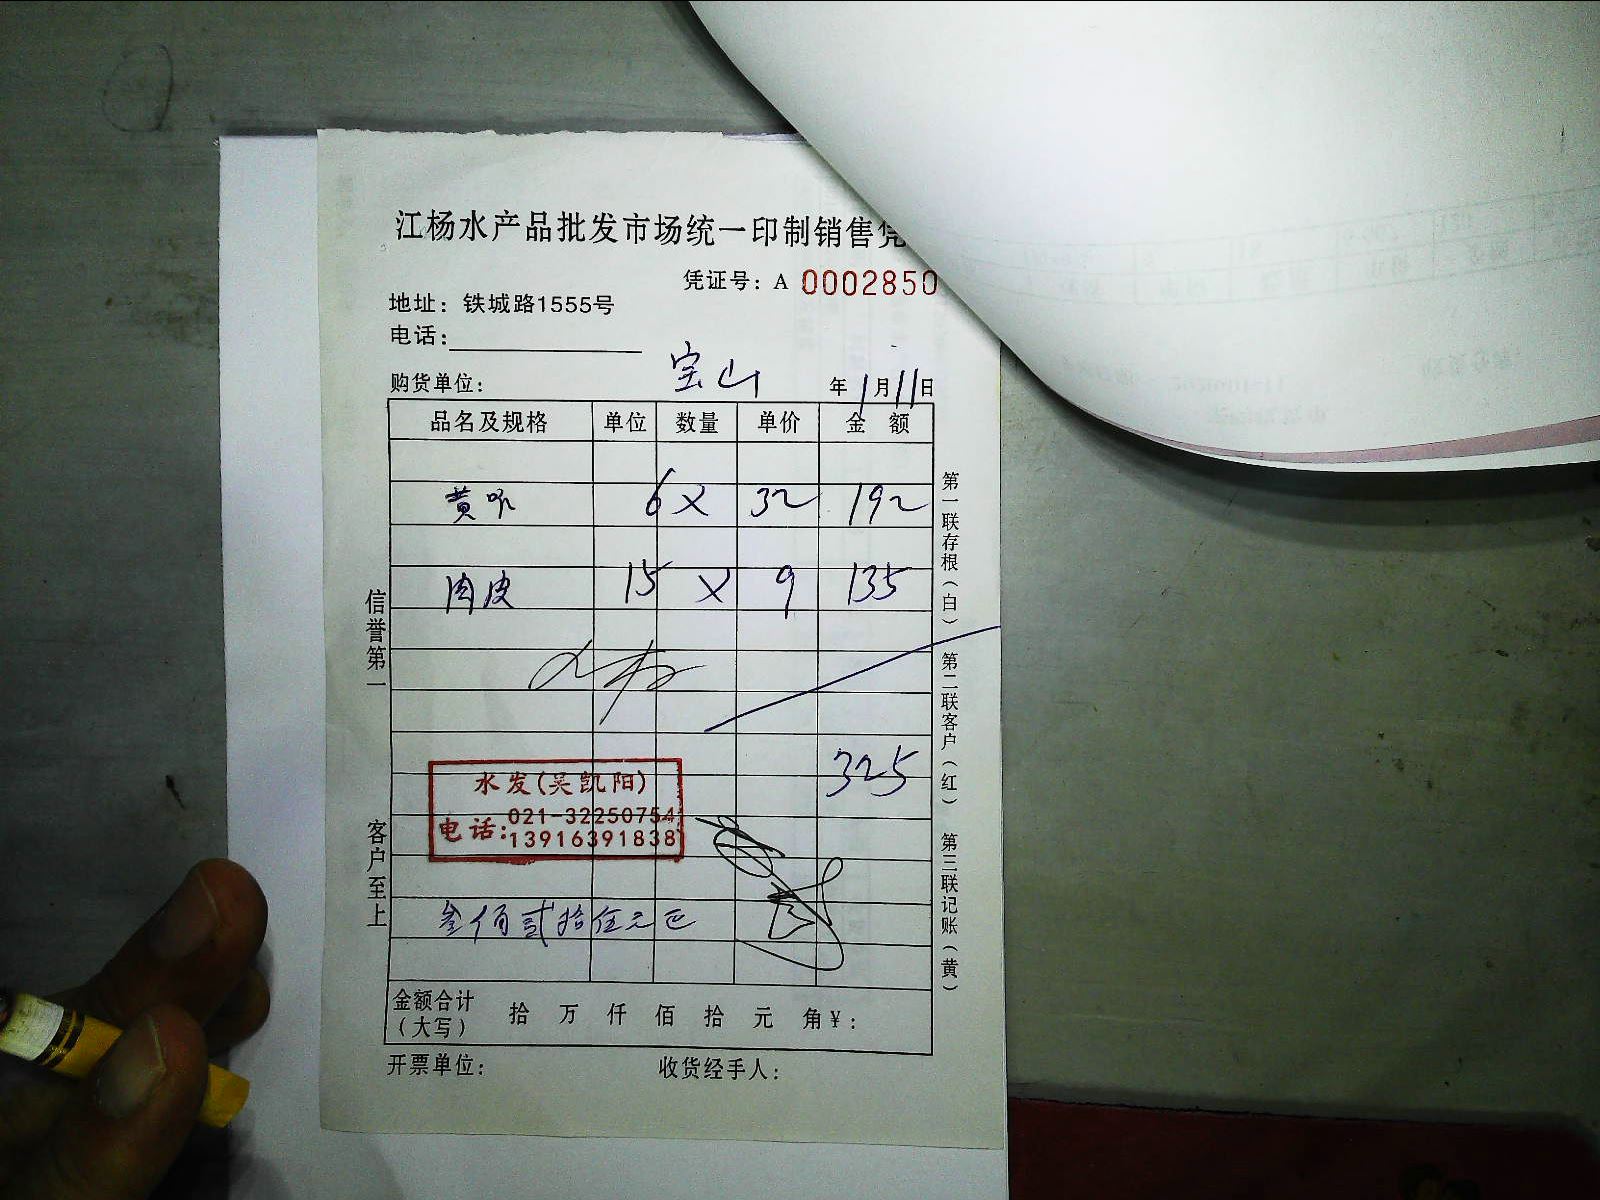 江杨水产品批发市场统一印制销售凭
凭证号：A 0002850
地址：铁城路1555号
电话：
购货单位： 宝山 年1月11日
品名及规格 单位 数量 单价 金额
黄 6 X 32 192
肉皮 15 X 9 135
325
水发(吴凯阳)
电话：021-32250754
13916391838
叁佰贰拾伍元正
金额合计（大写） 拾 万 仟 佰 拾 元 角 ¥：
开票单位： 收货经手人：
信誉第一
客户至上
第一联存根（白） 第二联客户（红） 第三联记账（黄）